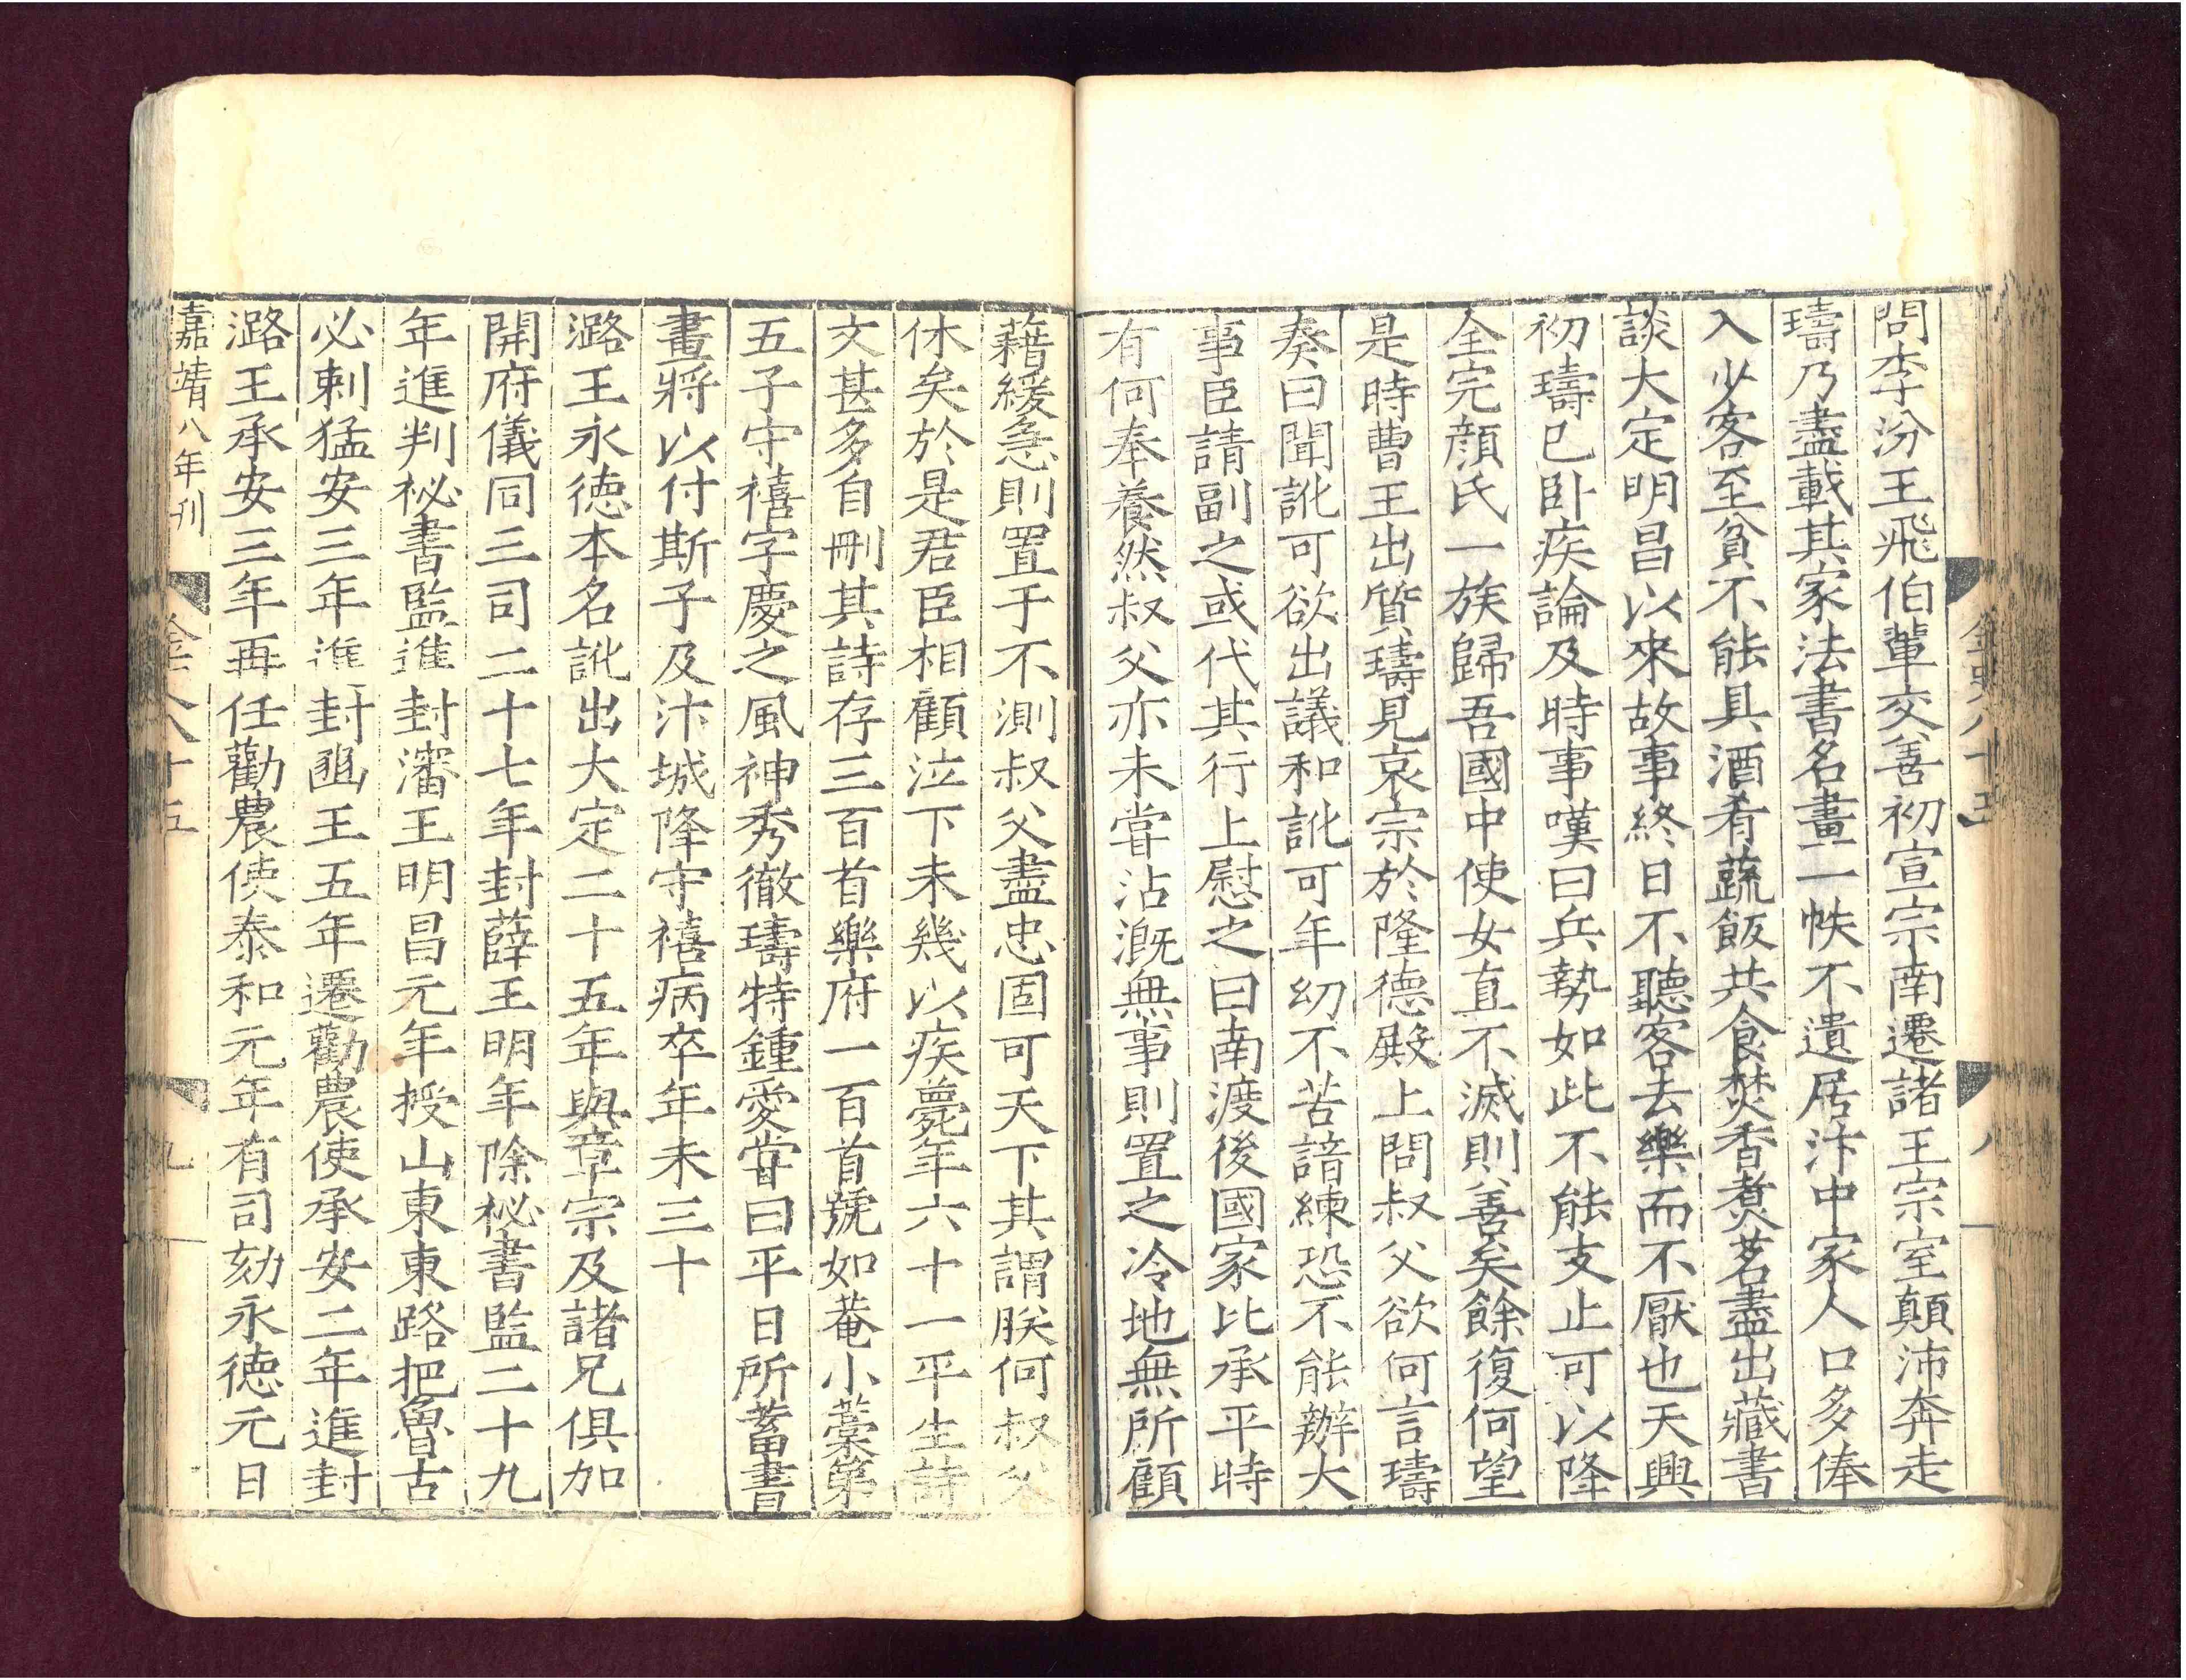 金史八十五
八
問李汾王飛伯輩交善初宣宗南遷諸王宗室顛沛奔走
璹乃盡載其家法書名畫一帙不遺居汴中家人口多俸
入少客至貧不能具酒肴蔬飯共食焚香煑茗盡出藏書
談大定明昌以來故事終日不聽客去樂而不厭也天興
初璹已卧疾論及時事嘆曰兵勢如此不能支止可以降
全完顔氏一族歸吾國中使女直不滅則善矣餘復何望
是時曹王出質璹見哀宗於隆德殿上問叔父欲何言璹
奏曰聞訛可欲出議和訛可年幼不苦諳練恐不能辦大
事臣請副之或代其行上慰之曰南渡後國家比承平時
有何奉養然叔父亦未甞沾溉無事則置之冷地無所顧
藉緩急則置于不測叔父盡忠固可天下其謂朕何叔父
休矣於是君臣相顧泣下未幾以疾薨年六十一平生詩
文甚多自刪其詩存三百首樂府一百首號如菴小藁第
五子守禧字慶之風神秀徹璹特鍾愛甞曰平日所蓄書
畫將以付斯子及汴城降守禧病卒年未三十
潞王永德本名訛出大定二十五年與章宗及諸兄俱加
開府儀同三司二十七年封薛王明年除祕書監二十九
年進判祕書監進封瀋王明昌元年授山東東路把魯古
必剌猛安三年進封豳王五年遷勸農使承安二年進封
潞王承安三年再任勸農使泰和元年有司劾永德元日
嘉靖八年刊
金史八十五
九